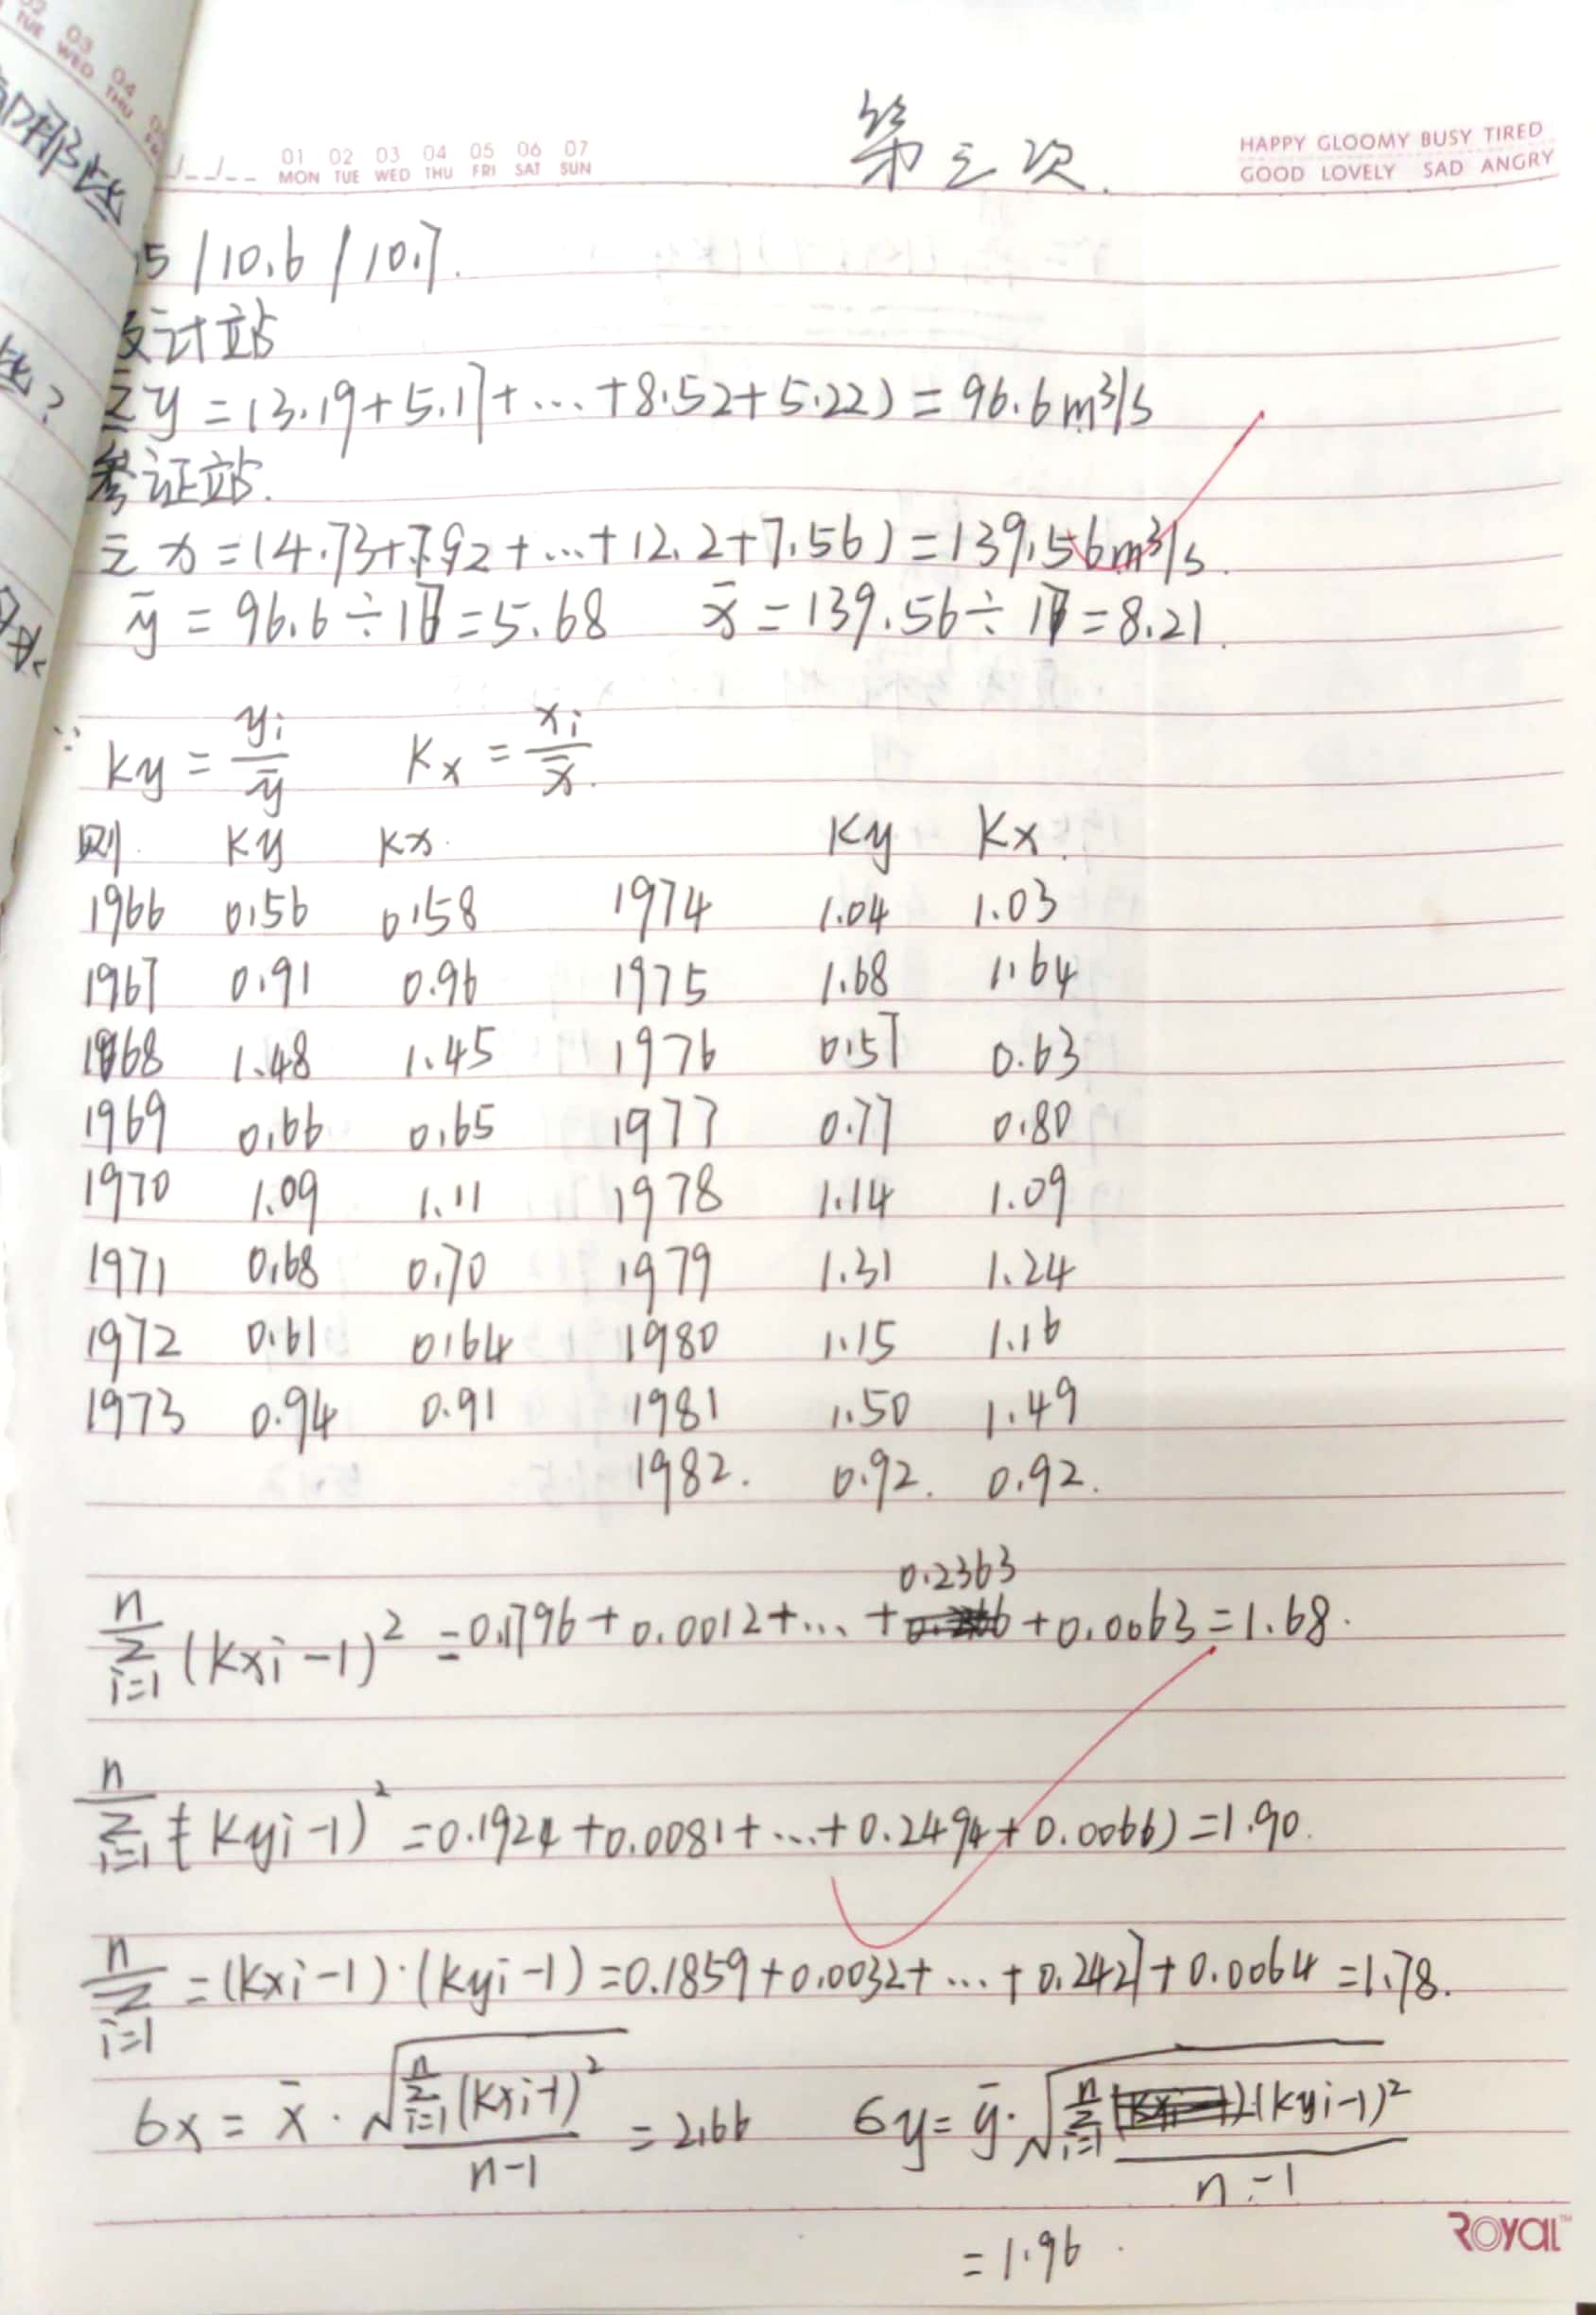 02 03 04
TUE WED THU
01 02 03 04 05 06 07
MON TUE WED THU FRI SAT SUN
第三次.
HAPPY GLOOMY BUSY TIRED
GOOD LOVELY SAD ANGRY
5 / 10.6 / 10.7.
设计站
Σy = (3.19+5.17+…+8.52+5.22) = 96.6m³/s
参证站.
Σx = (4.73+7.92+…+12.2+7.56) = 139.56m³/s.
ȳ = 96.6÷17=5.68 x̄ = 139.56÷17=8.21.
∵ Ky = yi/ȳ Kx = xi/x̄.
则. Ky Kx. Ky Kx.
1966 0.56 0.58 1974 1.04 1.03
1967 0.91 0.96 1975 1.68 1.64
1968 1.48 1.45 1976 0.57 0.63
1969 0.66 0.65 1977 0.77 0.80
1970 1.09 1.11 1978 1.14 1.09
1971 0.68 0.70 1979 1.31 1.24
1972 0.61 0.64 1980 1.15 1.16
1973 0.94 0.91 1981 1.50 1.49
1982. 0.92. 0.92.
n Σ i=1 (Kxi-1)² = 0.1796+0.0012+…+0.2363+0.0063=1.68.
n Σ i=1 (Kyi-1)² =0.1924+0.0081+…+0.2494+0.0066)=1.90.
n Σ i=1 =(Kxi-1)·(Kyi-1)=0.1859+0.0032+…+0.2427+0.0064=1.78.
6x = x̄·√(n Σ i=1 (Kxi-1)²/n-1) = 2.66 6y= ȳ·√(n Σ i=1 (Kyi-1)²/n-1)
= 1.96.
ROYAL™